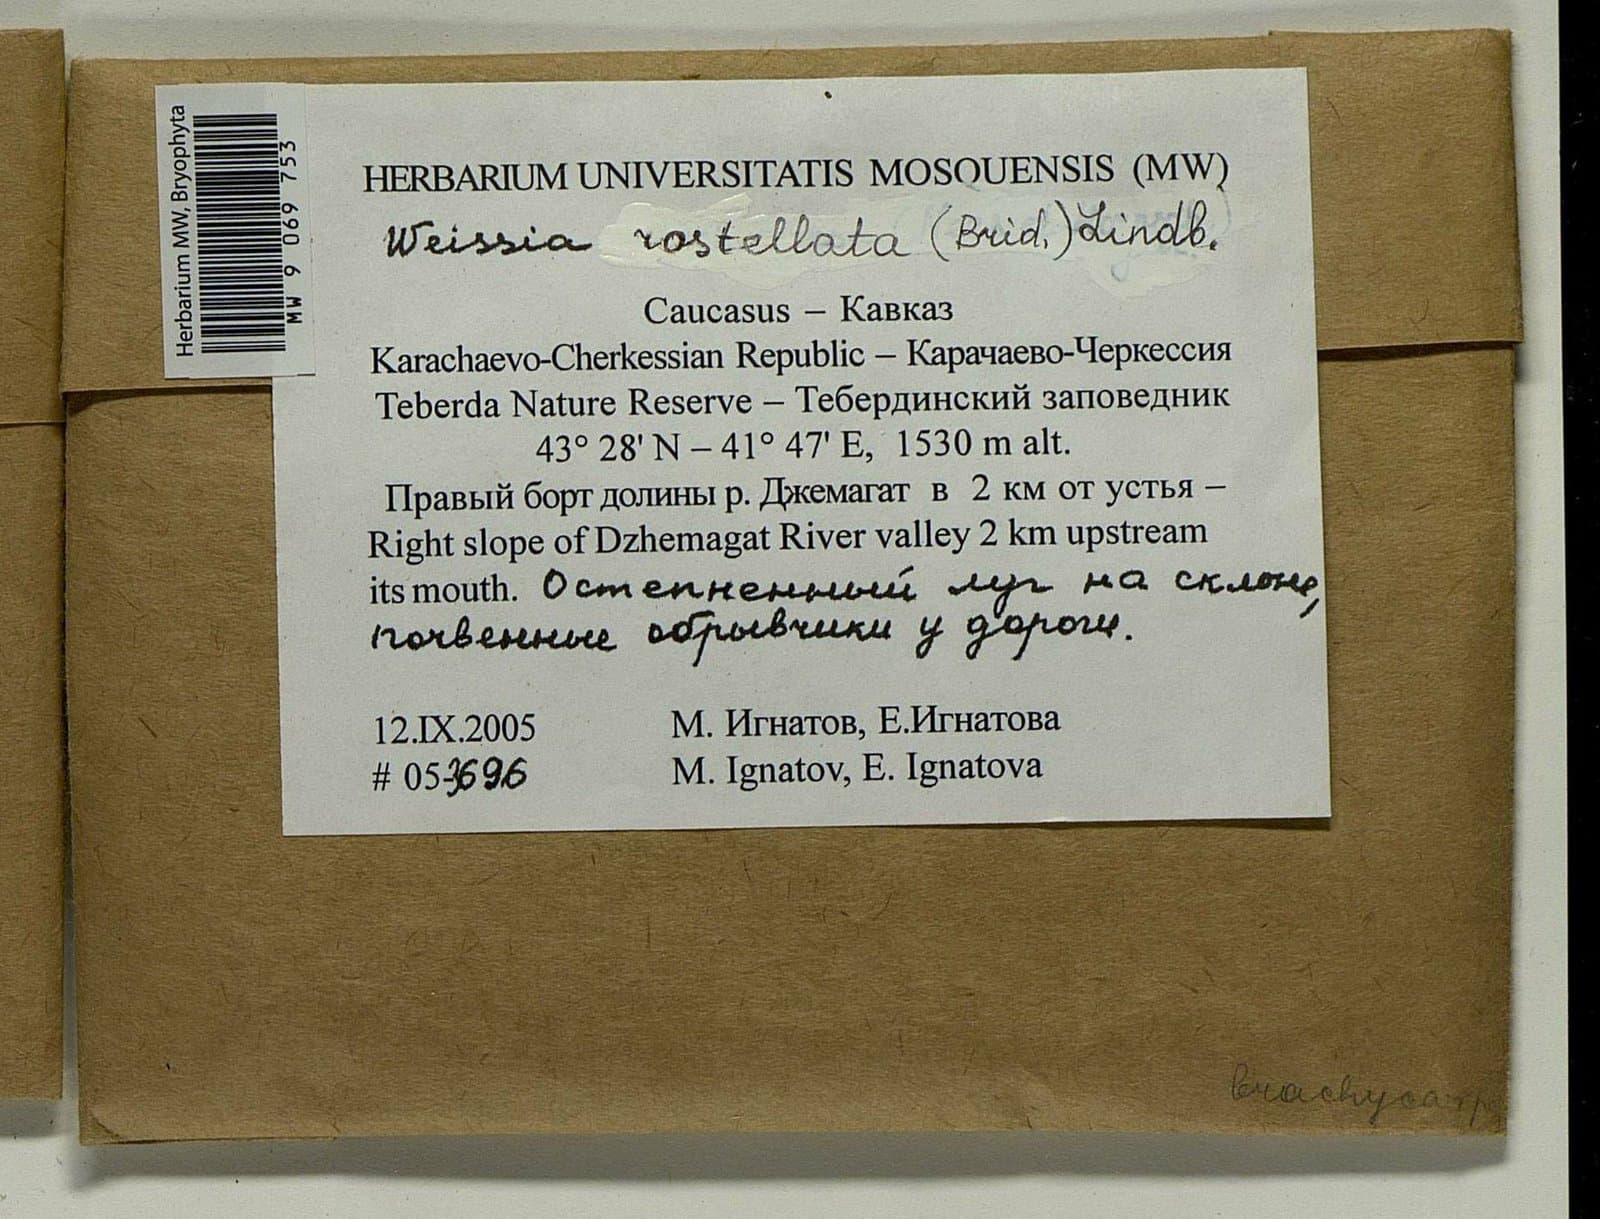 Herbarium MW, Bryophyta
MW 9 069 753
HERBARIUM UNIVERSITATIS MOSQUENSIS (MW)
Weissia rostellata (Brid.) Lindb.
Caucasus – Кавказ
Karachaevo-Cherkessian Republic – Карачаево-Черкессия
Teberda Nature Reserve – Тебердинский заповедник
43° 28' N – 41° 47' E, 1530 m alt.
Правый борт долины р. Джемагат в 2 км от устья –
Right slope of Dzhemagat River valley 2 km upstream
its mouth. Остепненный луг на склоне,
почвенные обрывчики у дороги.
12.IX.2005 М. Игнатов, Е.Игнатова
# 05-3696 M. Ignatov, E. Ignatova
brachycarp